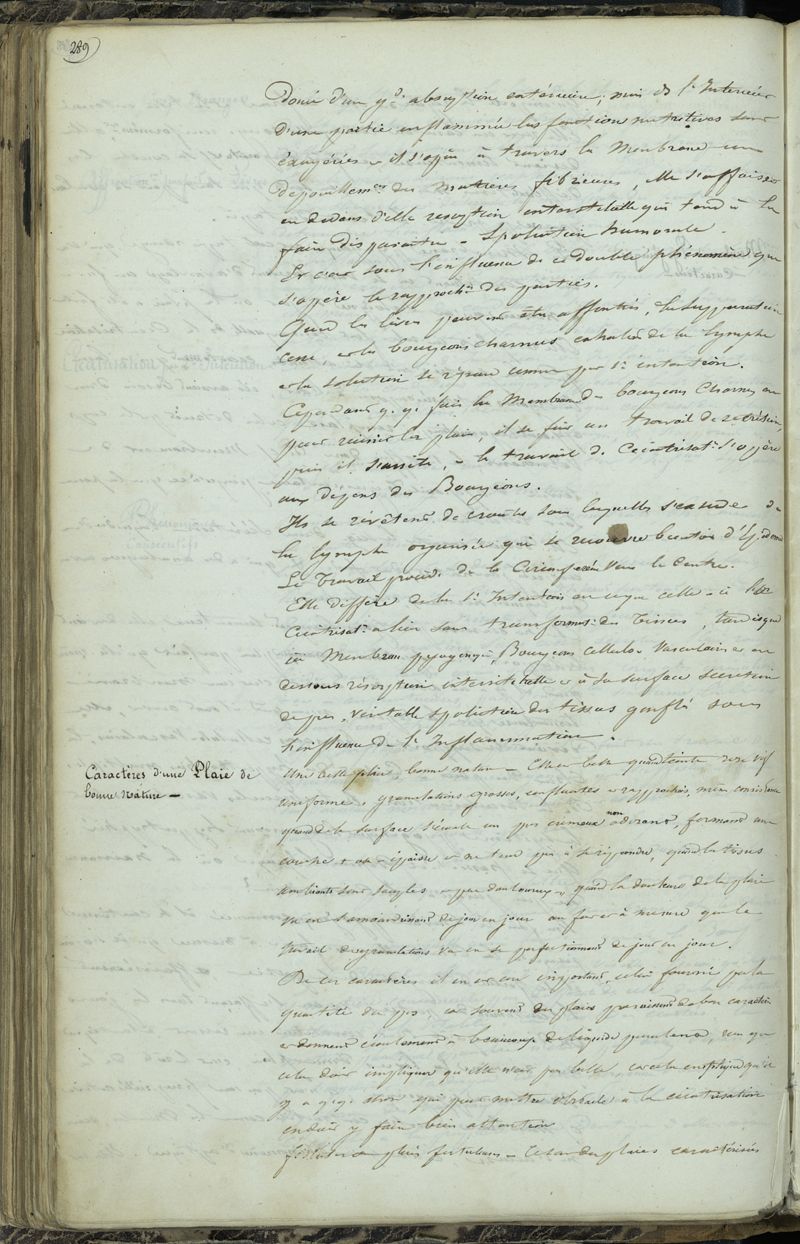 289
Doué d'un gd absorption extérieure, mais ds l'Intérieur
d'une partie enflammée les fonctions nutritives sont
exagérées - il s'opère à travers la Membrane un
des matières fibrineuses, elle s'affaisse
en dedans d'elle résorption interstitielle qui tend à la
faire disparaître - Spoliation humorale.
Et c'est sous l'influence de ce double phénomène que
s'opère le rapprocht des parties.
Quand les lèvres peuvent être affrontées, la suppuration
cesse, et les bourgeons charnus de la lymphe
et la solution se répare comme par 1e intention.
Cependant q.q. fois la Membrane des bourgeons Charnus
pour réunir les plaies, il se fait un travail de rétraction,
puis il s'arrête, - le travail de Cicatrisat. s'opère
aux dépens des Bourgeons.
Ils se revêtent de croutes sous lesquelles s'exsude de
la lymphe organisée qui se recouvre bientôt d'Epiderme
Le Travail procède de la Circonférence vers le Centre.
Elle diffère de la 1e Intention en ce que celle-ci
Cicatrisat. a lieu sans transformat. des Tissus, tandisque
ici Membrane pyogénique, Bourgeons cellulo-Vasculaires et en
dessous résorption interstitielle et à sa surface secretion
de pus, véritable spoliation des tissus gonflés sous
l'influence de l'Inflammation.
Caractères d'une Plaie de
bonne Nature -
Une belle plaie, bonne nature - Elle est belle quand teinte rose vif
uniforme, granulations grosses, confluentes et rapprochées, même consistance
quand de la surface s'écoule un pus crémeux non odorant, formant une
couche + ou - épaisse et ne tend pas à se répandre, quand les tissus
ambiants sont souples et peu douloureux, quand la douleur de la plaie
va en s'amoindrissant de jour en jour au fur et à mesure que le
travail de granulations va en se perfectionnant de jour en jour.
De ces caractères il en est un important, celui fourni par la
quantité du pus, car souvent des plaies paraissent de bon caractère
et donnent écoulement à beaucoup de liquide purulent,
cela doit impliquer qu'elle n'est pas belle, car cela implique qu'il
y a q.q. chose qui peut mettre obstacle à la cicatrisation
on doit y faire bien attention
fistules ou plaies fistuleuses - Ce sont des plaies caractérisées